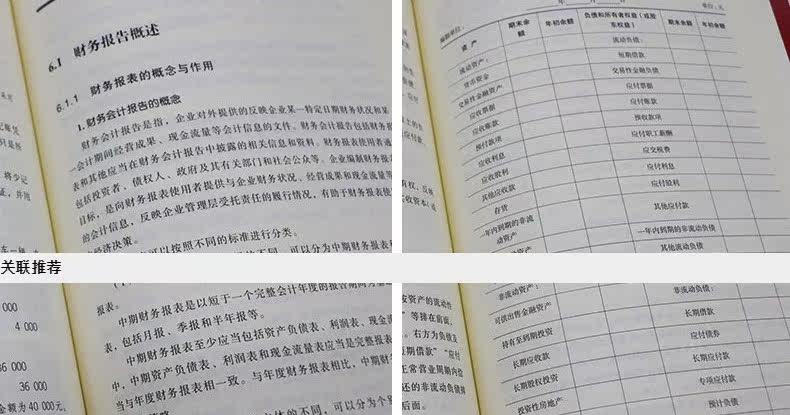 6.1 财务报告概述
6.1.1 财务报表的概念与作用
1. 财务会计报告的概念
财务会计报告是指,企业对外提供的反映企业某一特定日期财务状况和某
一会计期间经营成果、现金流量等会计信息的文件。财务会计报告包括财务报
表和其他应当在财务会计报告中披露的相关信息和资料。财务报表使用者通
包括投资者,债权人、政府及其有关部门和社会公众等。企业编制财务报表
目标,是向财务报表使用者提供与企业财务状况、经营成果和现金流量等
的会计信息,反映企业管理层受托责任的履行情况,有助于财务报表使
经济决策。
可以按照不同的标准进行分类。
可以分为中期财务报表
编制单位: 年 月 日 单位:元
资产 期末余额 年初余额 负债和所有者权益(或股东权益) 期末余额 年初余额
流动资产: 流动负债:
货币资金 短期借款
交易性金融资产 交易性金融负债
应收票据 应付票据
应收账款 应付账款
预付款项 预收款项
应收利息 应付职工薪酬
应收股利 应交税费
其他应收款 应付利息
存货 应付股利
一年内到期的非流动资产 其他应付款
一年内到期的非流动负债
其他流动负债
关联推荐
000
4 000
36 000
36 000
金额为 40 000元,
报表。
中期财务报表是以短于一个完整会计年度的报告期间为基
表,包括月报、季报和半年报等。
中期财务报表至少应当包括资产负债表、利润表、现金流
中,中期资产负债表、利润表和现金流量表应当是完整报表
当与年度财务报表相一致。与年度财务报表相比,中期财
的不同,可以分为个别
按资产的流动性
”等排在前面,
。右方为负债及
短期借款”“应付
正常营业周期内偿
还的非流动负债排
后面。
非流动资产: 非流动负债:
可供出售金融资产 长期借款
持有至到期投资 应付债券
长期应收款 长期应付款
长期股权投资 专项应付款
投资性房地产 预计负债